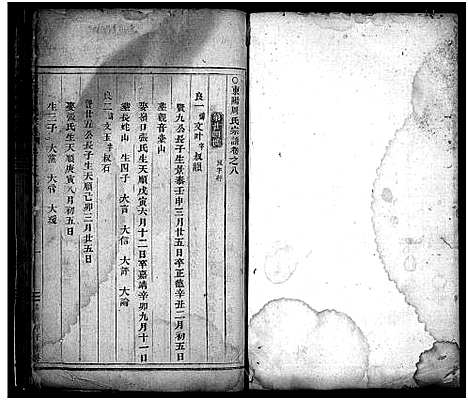 ○東陽周氏宗譜卷之八
良一 諱文叶字叔韻
賢九公長子生景泰壬申三月廿五日卒正德辛丑二月初五日
葬觀音臺山
娶 口張氏生天順戊寅六月十二日卒嘉靖辛卯九月十一日
葬長蛇山 生四子 大言 大信 大評 大論
良二 諱文玉字叔石
賢廿五公長子生天順己卯三月廿五日
娶張氏生天順庚寅八月初五日
生三子 大 大 大